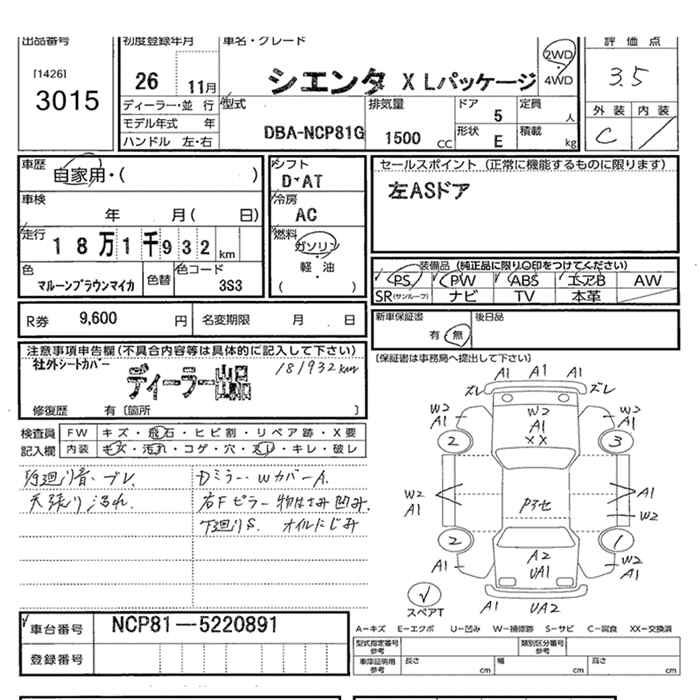 出品番号 初度登録年月 車名・グレード 評価点
[1426] 3015
26 11月 シエンタ XLパッケージ 2WD 4WD 3.5
ディーラー・並行 型式 排気量 ドア 定員 外装 内装
モデル年式 年 DBA-NCP81G 1500 CC 5 人 C
ハンドル 左・右 形状 E 積載 kg
車歴 自家用・( ) シフト D・AT セールスポイント (正常に機能するものに限ります)
左ASドア
車検 年 月( 日) 冷房 AC
走行 18万1千932km 燃料 ガソリン・軽油・( )
装備品 (純正品に限り〇印をつけてください)
PS PW ABS エアB AW
SR(サンルーフ) ナビ TV 本革
色 マルーンブラウンマイカ 色替 色コード 3S3
R券 9,600 円 名変期限 月 日
新車保証書 有 無 後日品
(保証書は事務局へ提出して下さい)
注意事項申告欄(不具合内容等は具体的に記入して下さい)
社外シートカバー 181932km
ディーラー出品
修復歴 有〔箇所 〕
検査員 FW キズ・飛石・ヒビ割・リペア跡・X要
記入欄 内装 キズ・汚れ・コゲ・穴・スレ・キレ・破レ
内廻り音・ブレ Dミラー・WカバーA.
天張り汚れ. 右Fピラー物はさみ凹み.
下廻りS. オイルにじみ
A1 A1 A1
ズレ ズレ
W2 A1 W2 A1 XX W2 A1
2 3
W2 A1 Pスセ A1 W2
2 1
A1 A2 UA1 W2 A1
A1 UA2
スペアT
車台番号 NCP81-5220891
登録番号
A-キズ E-エクボ U-凹み W-補修跡 S-サビ C-腐食 XX-交換済
型式指定番号 参考 類別区分番号 参考
車庫証明用 参考 長さ cm 幅 cm 高さ cm